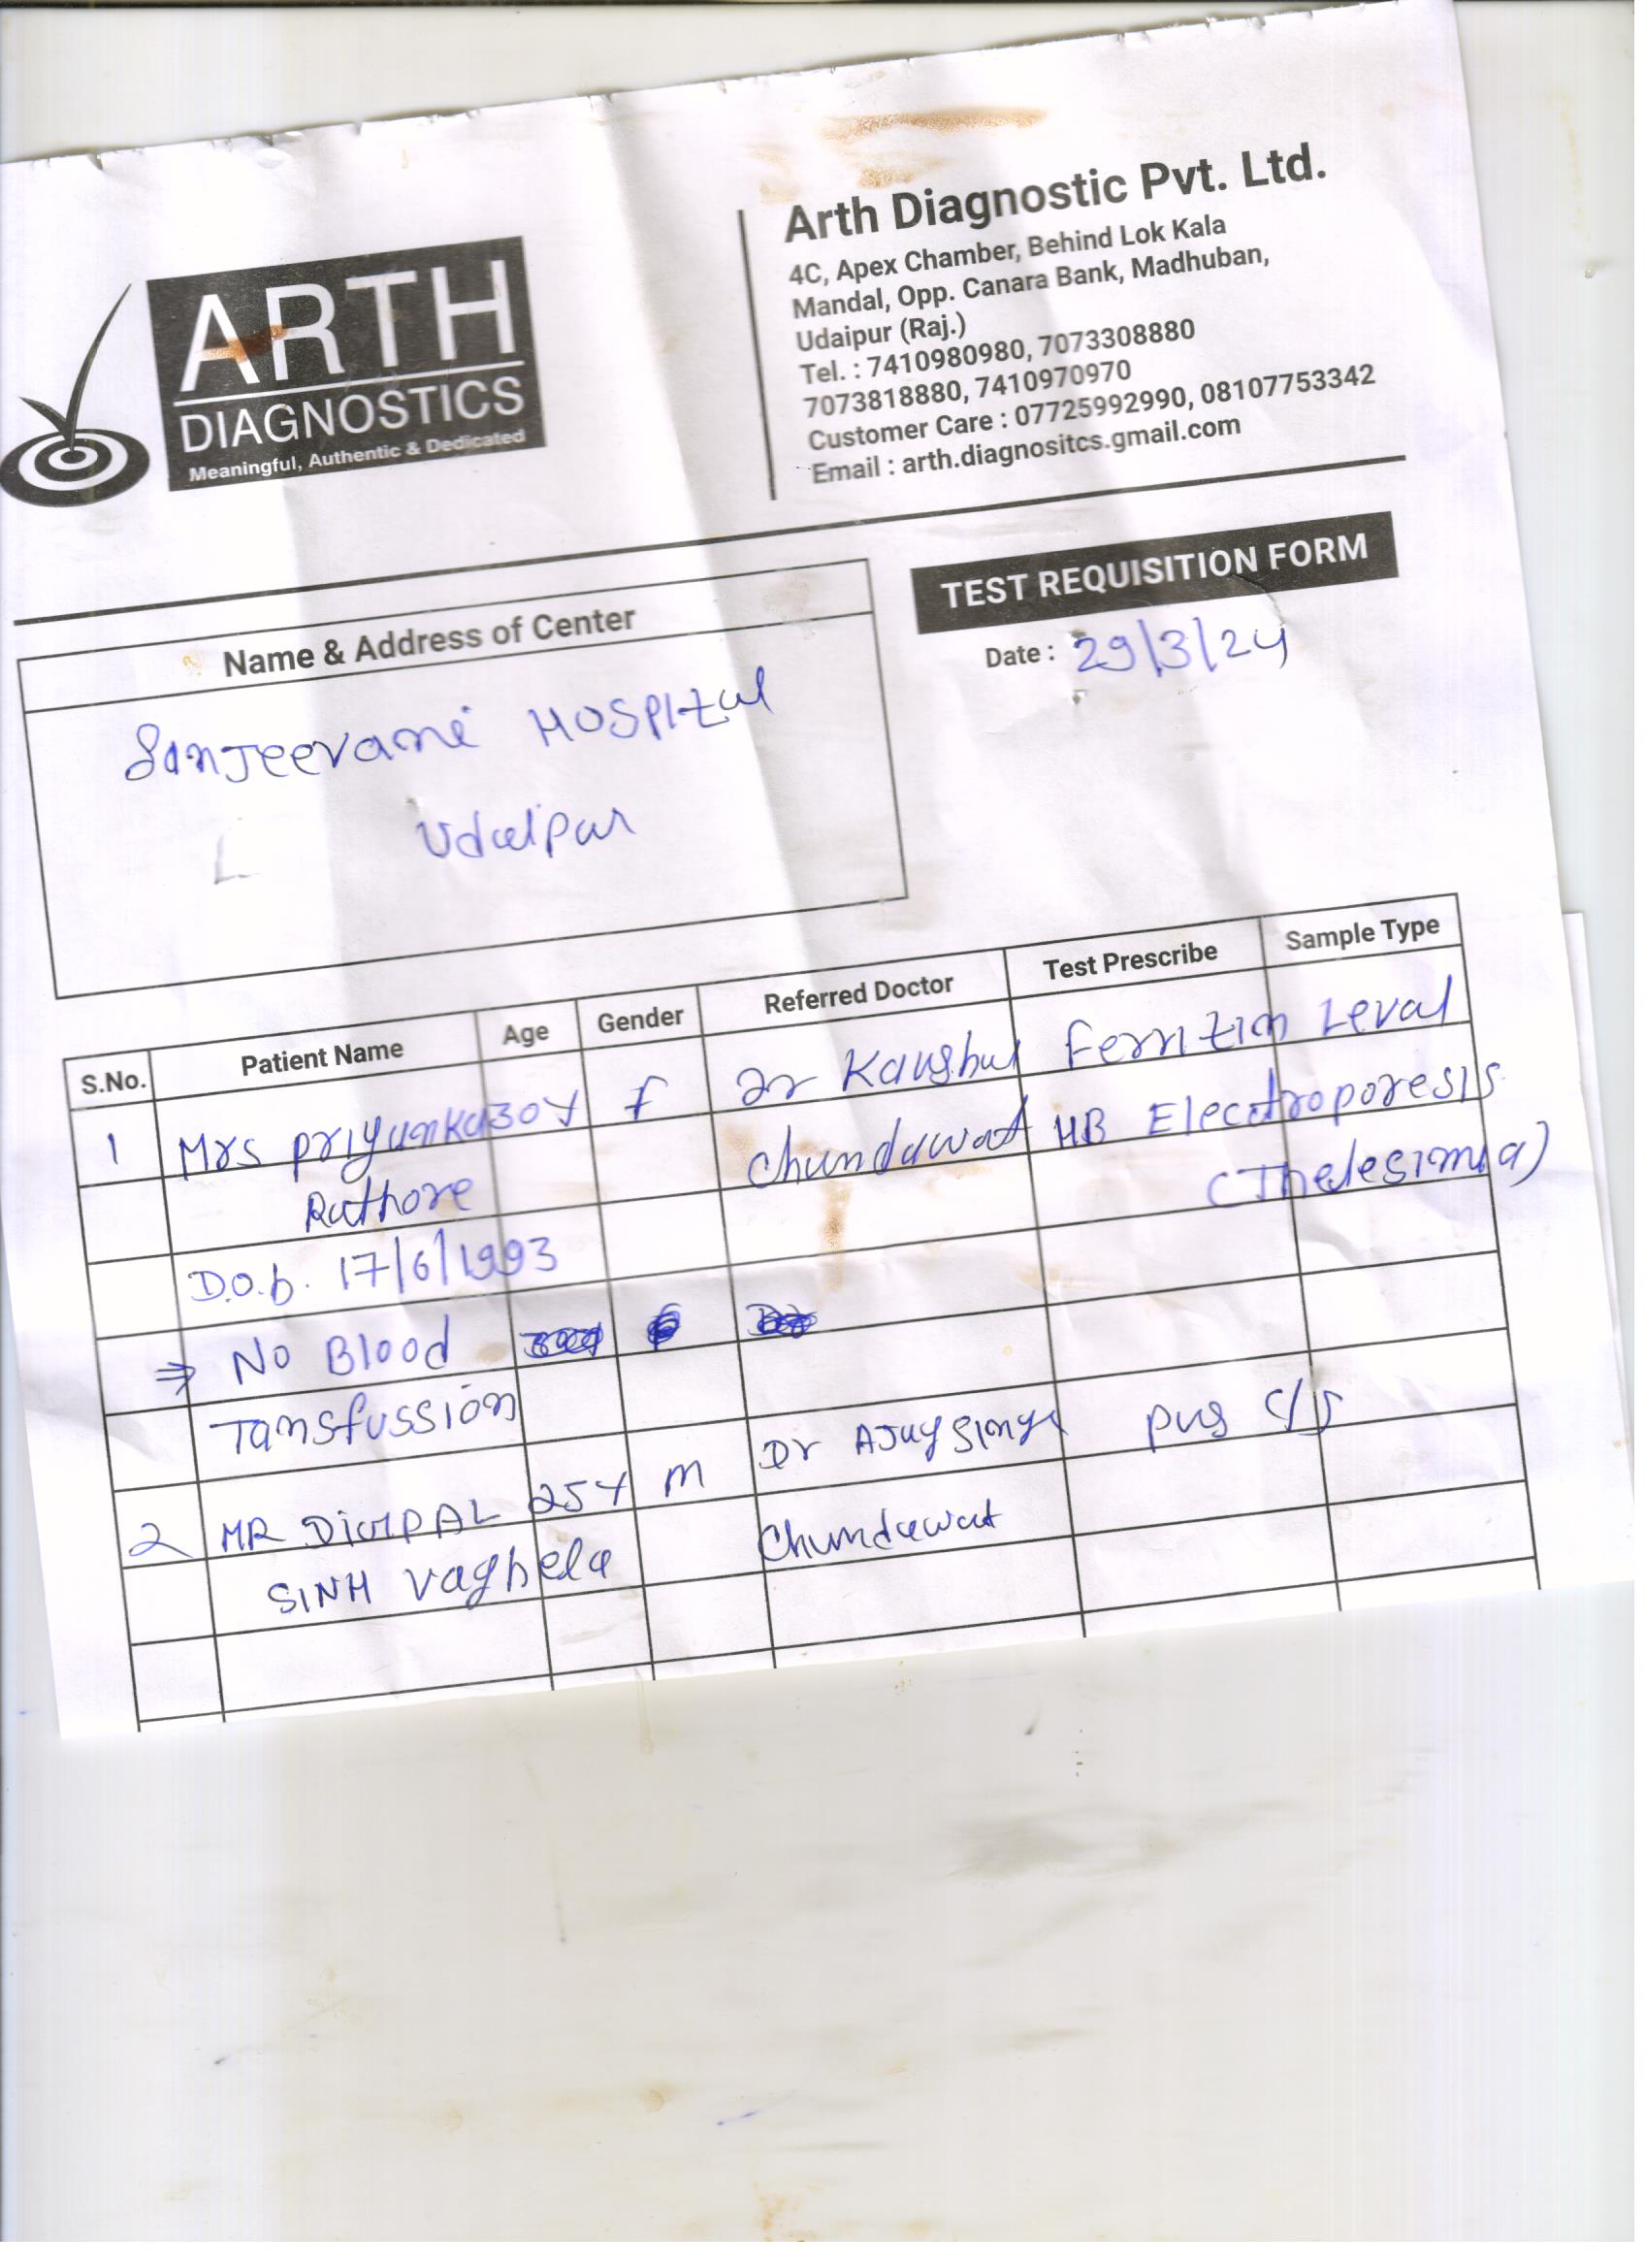 ARTH
DIAGNOSTICS
Meaningful, Authentic & Dedicated
Arth Diagnostic Pvt. Ltd.
4C, Apex Chamber, Behind Lok Kala
Mandal, Opp. Canara Bank, Madhuban,
Udaipur (Raj.)
Tel. : 7410980980, 7073308880
7073818880, 7410970970
Customer Care : 07725992990, 08107753342
Email : arth.diagnositcs.gmail.com
TEST REQUISITION FORM
Date : 29/3/24
Name & Address of Center
Sanjeevani Hospital
Udaipur
S.No. Patient Name Age Gender Referred Doctor Test Prescribe Sample Type
1 Mrs Priyanka 30Y F Dr Kaushal Ferritin Leval
Rathore Chundawat HB Elecctroporesis
(Thelesimia)
D.O.b. 17/6/1993
⇒ No Blood
Tansfussion
2 MR DIMPAL 25Y M Dr Ajay Singh pus c/s
SINH Vaghela Chundawat